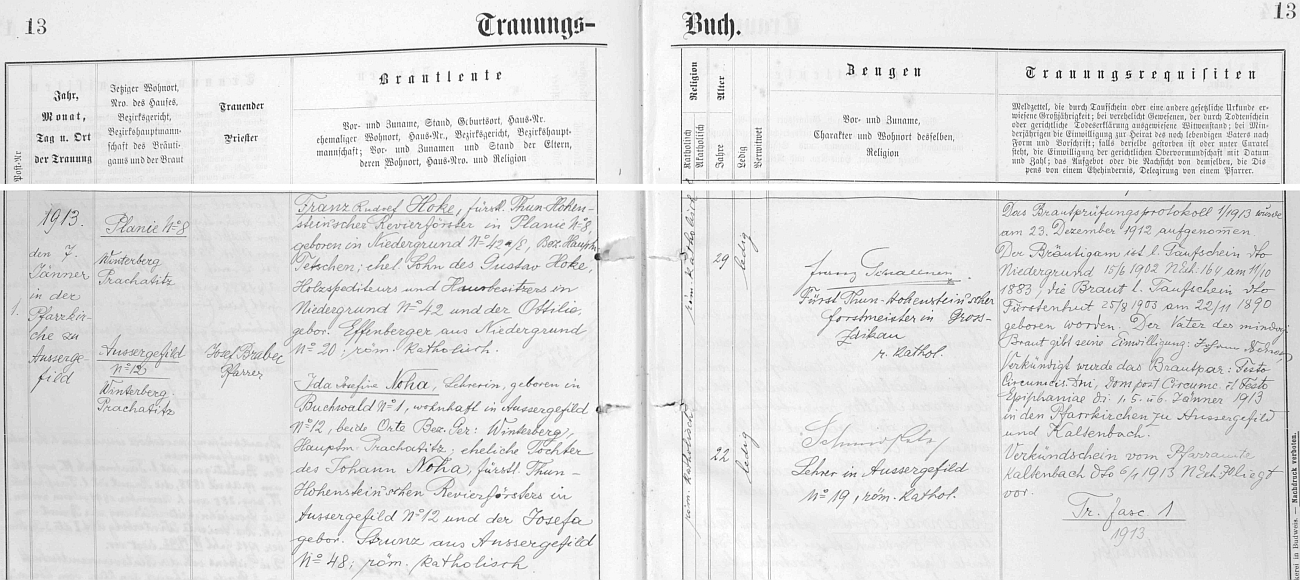 13
Trauungs-
Buch.
13
Post-Nr
Jahr,
Monat,
Tag u. Ort
der Trauung
Jetziger Wohnort,
Nro. des Hauses,
Bezirksgericht,
Bezirkshauptmann-
schaft des Bräuti-
gams und der Braut
Trauender
Priester
Brautleute
Vor- und Zuname, Stand, Geburtsort, Haus-Nr.
ehemaliger Wohnort, Haus-Nr., Bezirksgericht, Bezirkshaupt-
mannschaft; Vor- und Zunamen und Stand der Eltern,
deren Wohnort, Haus-Nro. und Religion
Religion
Katholisch
Akatholisch
Alter
Jahre
Ledig
Verwitwet
Zeugen
Vor- und Zuname,
Charakter und Wohnort desselben,
Religion
Trauungsrequisiten
Meldzettel, die durch Taufschein oder eine andere gesetzliche Urkunde er-
wiesene Großjährigkeit; bei verehelicht Gewesenen, der durch Todtenschein
oder gerichtliche Todeserklärung ausgewiesene Witwenstand; bei Min-
derjährigen die Einwilligung zur Heirat des noch lebendigen Vaters nach
Form und Vorschrift; falls derselbe gestorben ist oder unter Curatel
steht, die Einwilligung der gerichtlichen Obervormundschaft mit Datum
und Zahl; das Aufgebot oder die Nachsicht von demselben, die Dis
pens von einem Ehehindernis, Delegirung von einem Pfarrer.
1913.
den 7.
Jänner
in der
1. Pfarrkir-
che zu
Aussergefild
Planie No 8
Winterberg
Prachatitz
Aussergefild
No 12
Winterberg
Prachatitz
Josef Brabec
Pfarrer
Franz Rudolf Hoke, fürstl. Thun-Hohen-
stein'scher Revierförster in Planie No 8,
geboren in Niedergrund No 42/8, Bez. Hauptm.
Tetschen; ehel. Sohn des Gustav Hoke,
Holzspediteurs und Hausbesitzers in
Niedergrund No 42 und der Ottilia,
gebor. Effenberger aus Niedergrund
No 20; röm. katholisch.
Ida Josefine Noha, Lehrerin, geboren in
Buchwald No 1, wohnhaft in Aussergefild
No 12, beide Orte Bez. Ger: Winterberg,
Hauptm. Prachatitz; eheliche Tochter
des Johann Noha, fürstl. Thun-
Hohenstein'schen Revierförsters in
Aussergefild No 12 und der Josefa
gebor. Strunz aus Aussergefild
No 48; röm. katholisch.
röm. katholisch
29
ledig
Franz
Fürst Thun-Hohenstein'scher
Forstmeister in Gross-
Zdikau
r. kathol.
röm. katholisch
22
ledig
Lehrer in Aussergefild
No 19, röm. kathol.
Das Brautprüfungsprotokoll 1/1913 wurde
am 23. Dezember 1912 aufgenommen
Der Bräutigam ist l. Taufschein dto
Niedergrund 15/6 1902 N. Exh. 164 am 11/10
1883, die Braut l. Taufschein dto
Fürstenhut 25/8 1903 am 22/11 1890
geboren worden. Der Vater der minderj.
Braut gibt seine Einwilligung: Johann Noha
Verkündigt wurde das Brautpar: Festo
Circumcis. Dni, Dom. post Circumc. et Festo
Epiphaniae di: 1. 5. u. 6. Jänner 1913
in den Pfarrkirchen zu Aussergefild
und Kaltenbach.
Verkündschein vom Pfarramte
Kaltenbach dto 6/1 1913 N. Exh. liegt
vor.
Tr. fasc. 1
1913
erei in Budweis. — Nachdruck verboten.